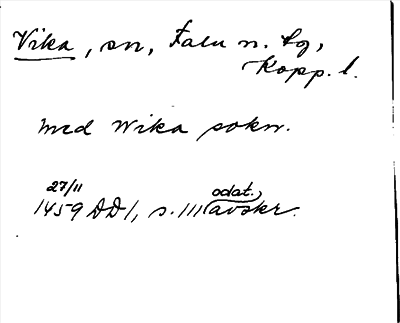 Vika, sn, Falu n. tg,
Kopp. l.
med Wika sokn.
27/11 odat.,
1459 DD1, s. 111 (avskr.